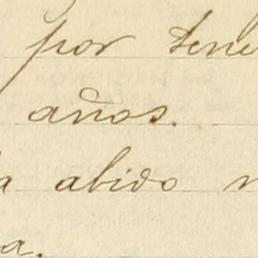 por tene
años.
a abido n
a.